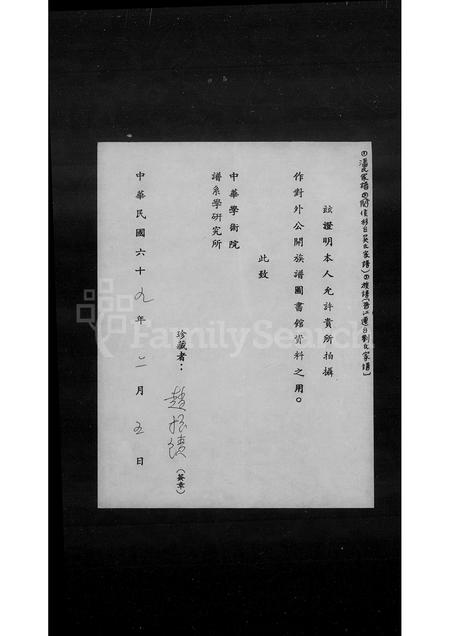 ①潘氏家譜②附渡杉台吳氏家譜)③族譜(晉江遷台劉氏家譜)
茲證明本人允許貴所拍攝
作對外公開族譜圖書館資料之用。
此致
中華學術院
譜系學研究所
珍藏者：趙振績（簽章）
中華民國六十九年二月五日
FamilySearch